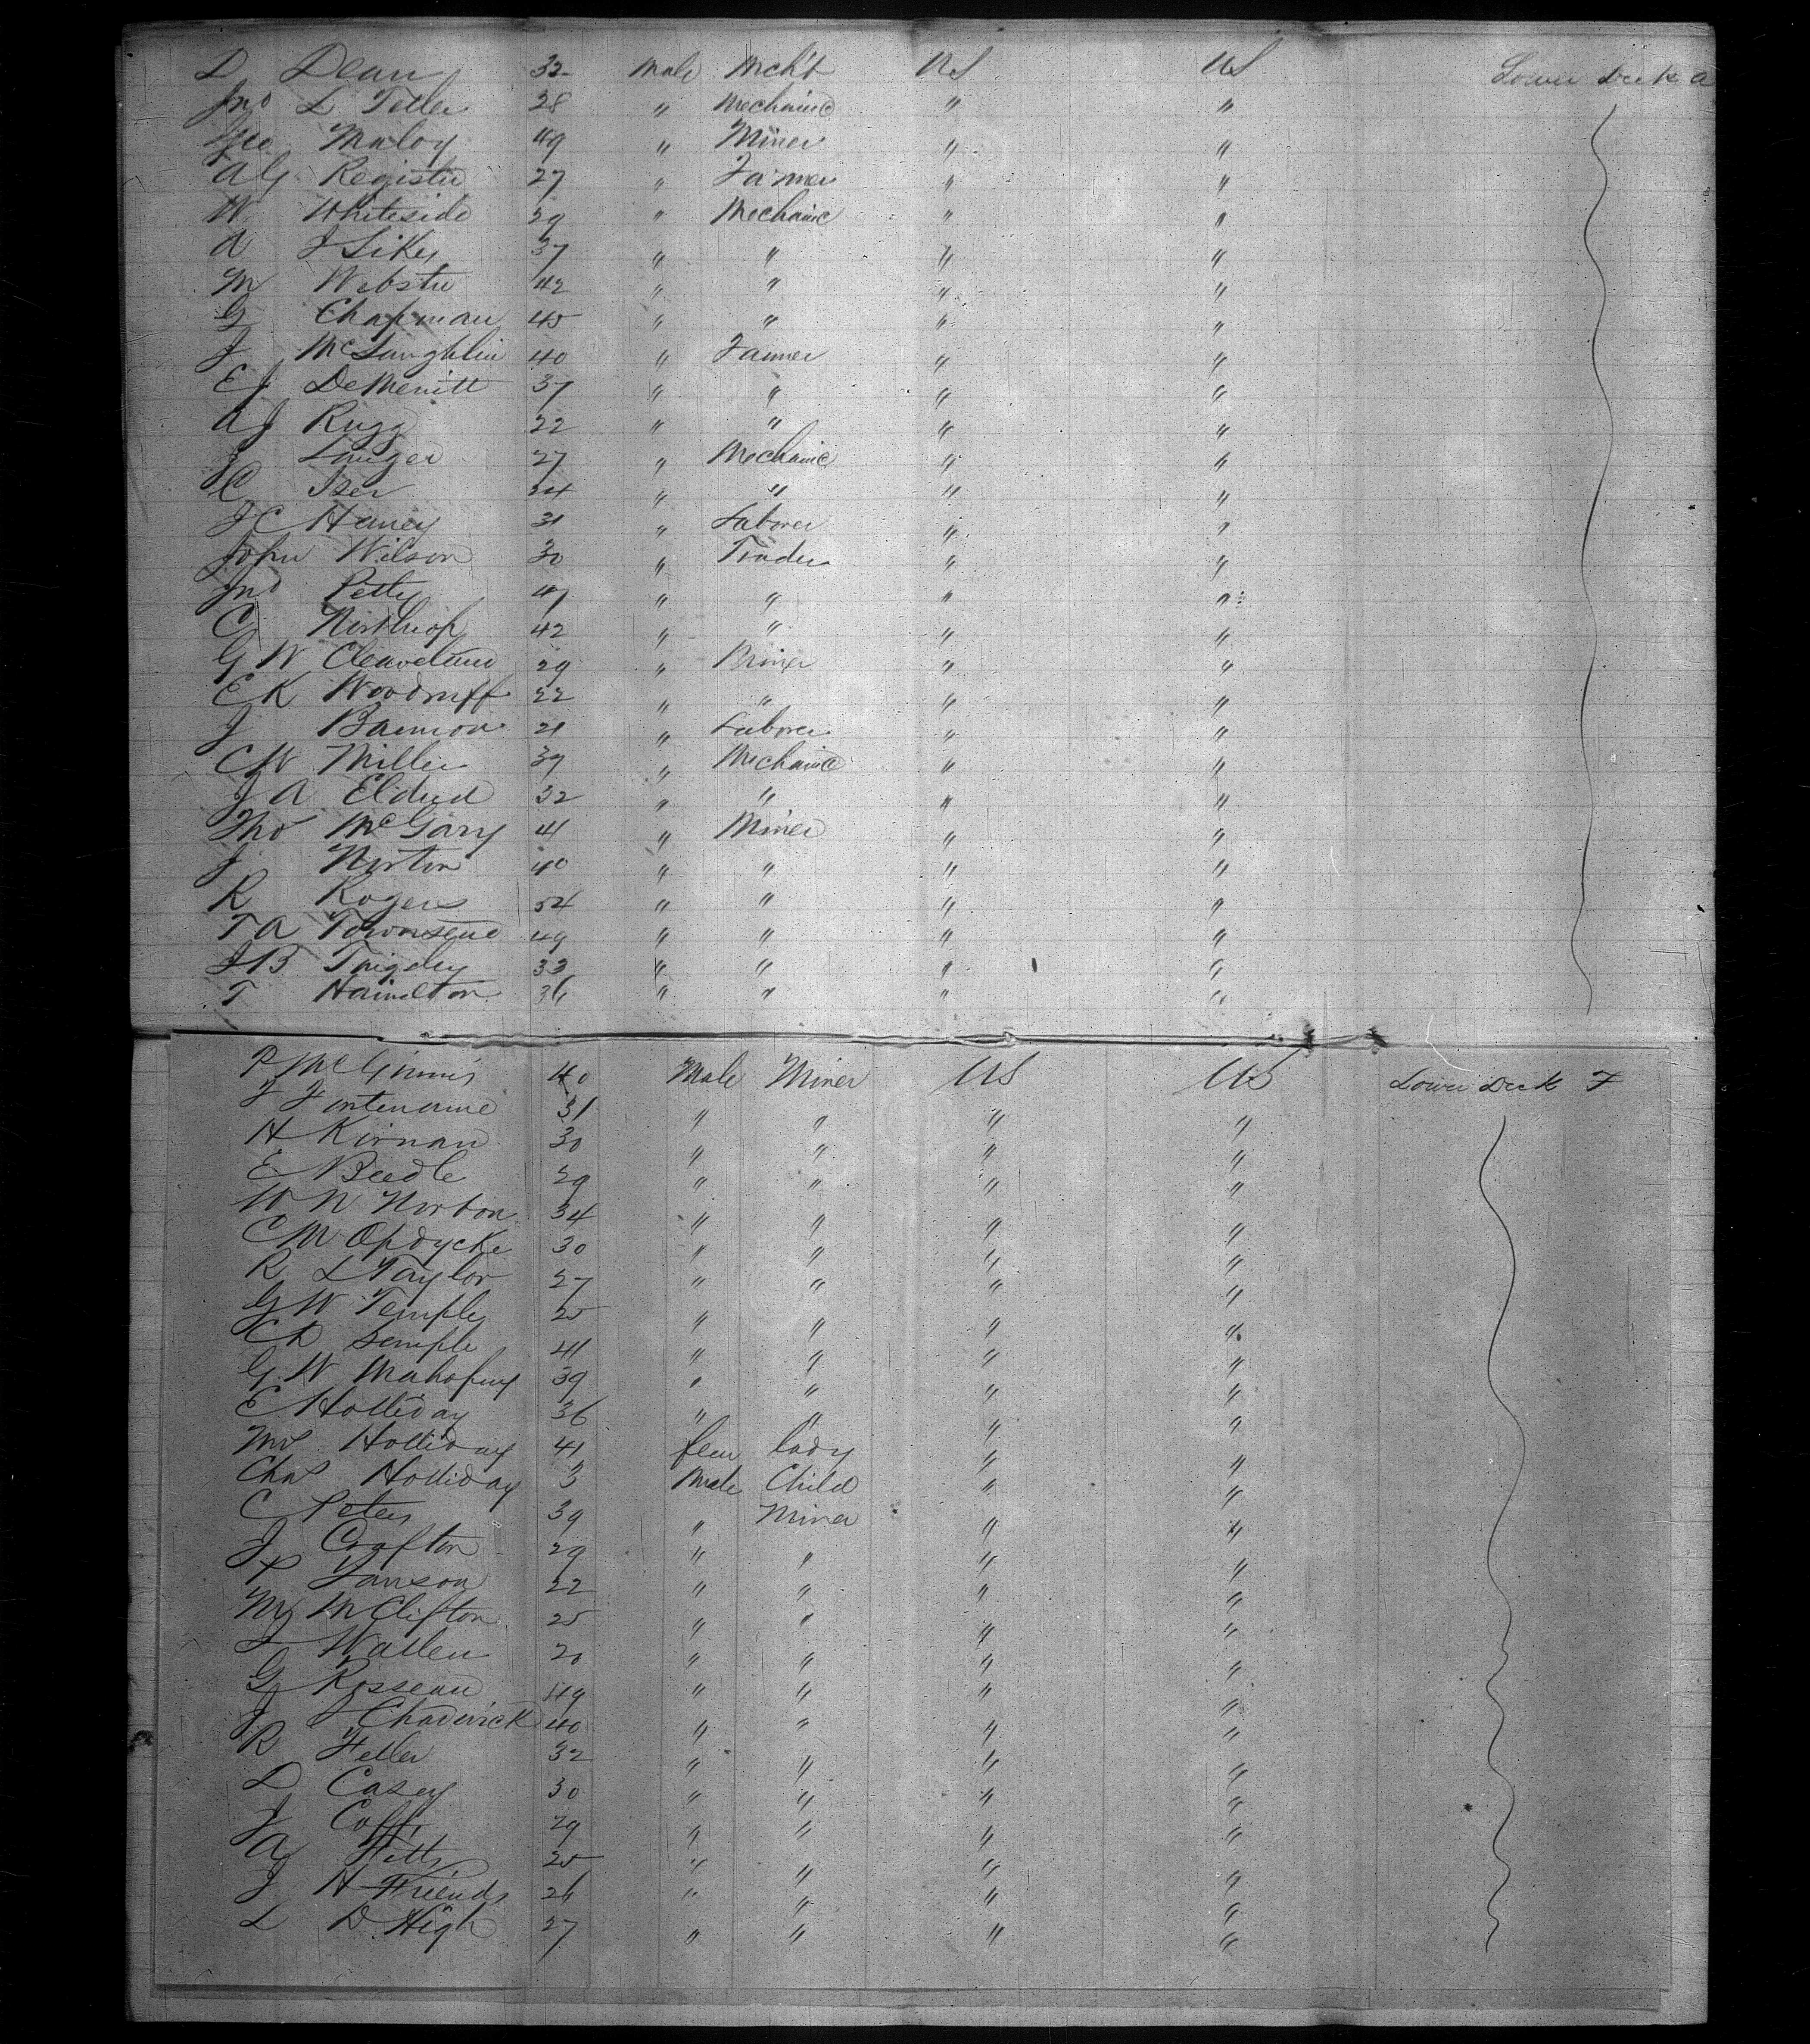 D Dean 32 Male Mch't US US Lower Deck A
Jno L Teller 28 " Mechanic " "
Geo Maloy 49 " Miner " "
A G Register 27 " Farmer " "
W Whiteside 29 " Mechanic " "
A J Sikes 37 " " " "
M Webster 42 " " " "
G Chapman 45 " " " "
J McLaughlin 40 " Farmer " "
E J DeMerritt 37 " " " "
A J Rugg 22 " " " "
J 27 " Mechanic " "
C Iser 24 " " " "
J C Haney 31 " Laborer " "
John Wilson 30 " Trader " "
Jno Petty 47 " " " "
C Northrop 42 " " " "
G W Cleaveland 29 " Miner " "
E K Woodruff 22 " " " "
J Bannon 21 " Laborer " "
C W Miller 39 " Mechanic " "
J A Eldred 32 " " " "
Tho McGary 41 " Miner " "
J Norton 40 " " " "
R Rogers 54 " " " "
T A Townsend 49 " " " "
J B 33 " " " "
T Hamilton 36 " " " "
P McGinnis 40 Male Miner US US Lower Deck F
F 31 " " " "
H Kirnan 30 " " " "
E Beedle 29 " " " "
W N Norton 34 " " " "
C M Opdycke 30 " " " "
R L Taylor 27 " " " "
G W Temple 25 " " " "
C R Semple 41 " " " "
G W 39 " " " "
E Holliday 36 " " " "
Mrs Holliday 41 fem lady " "
Chas Holliday 3 Male Child " "
C Peters 39 " Miner " "
J Crafton 29 " " " "
P Janson 22 " " " "
Wm M Clifton 25 " " " "
L Wallen 20 " " " "
G Rosseau 49 " " " "
J S Chadwick 40 " " " "
R Feller 32 " " " "
D Casey 30 " " " "
J 29 " " " "
A Fitts 25 " " " "
J H Friends 26 " " " "
L D High 27 " " " "